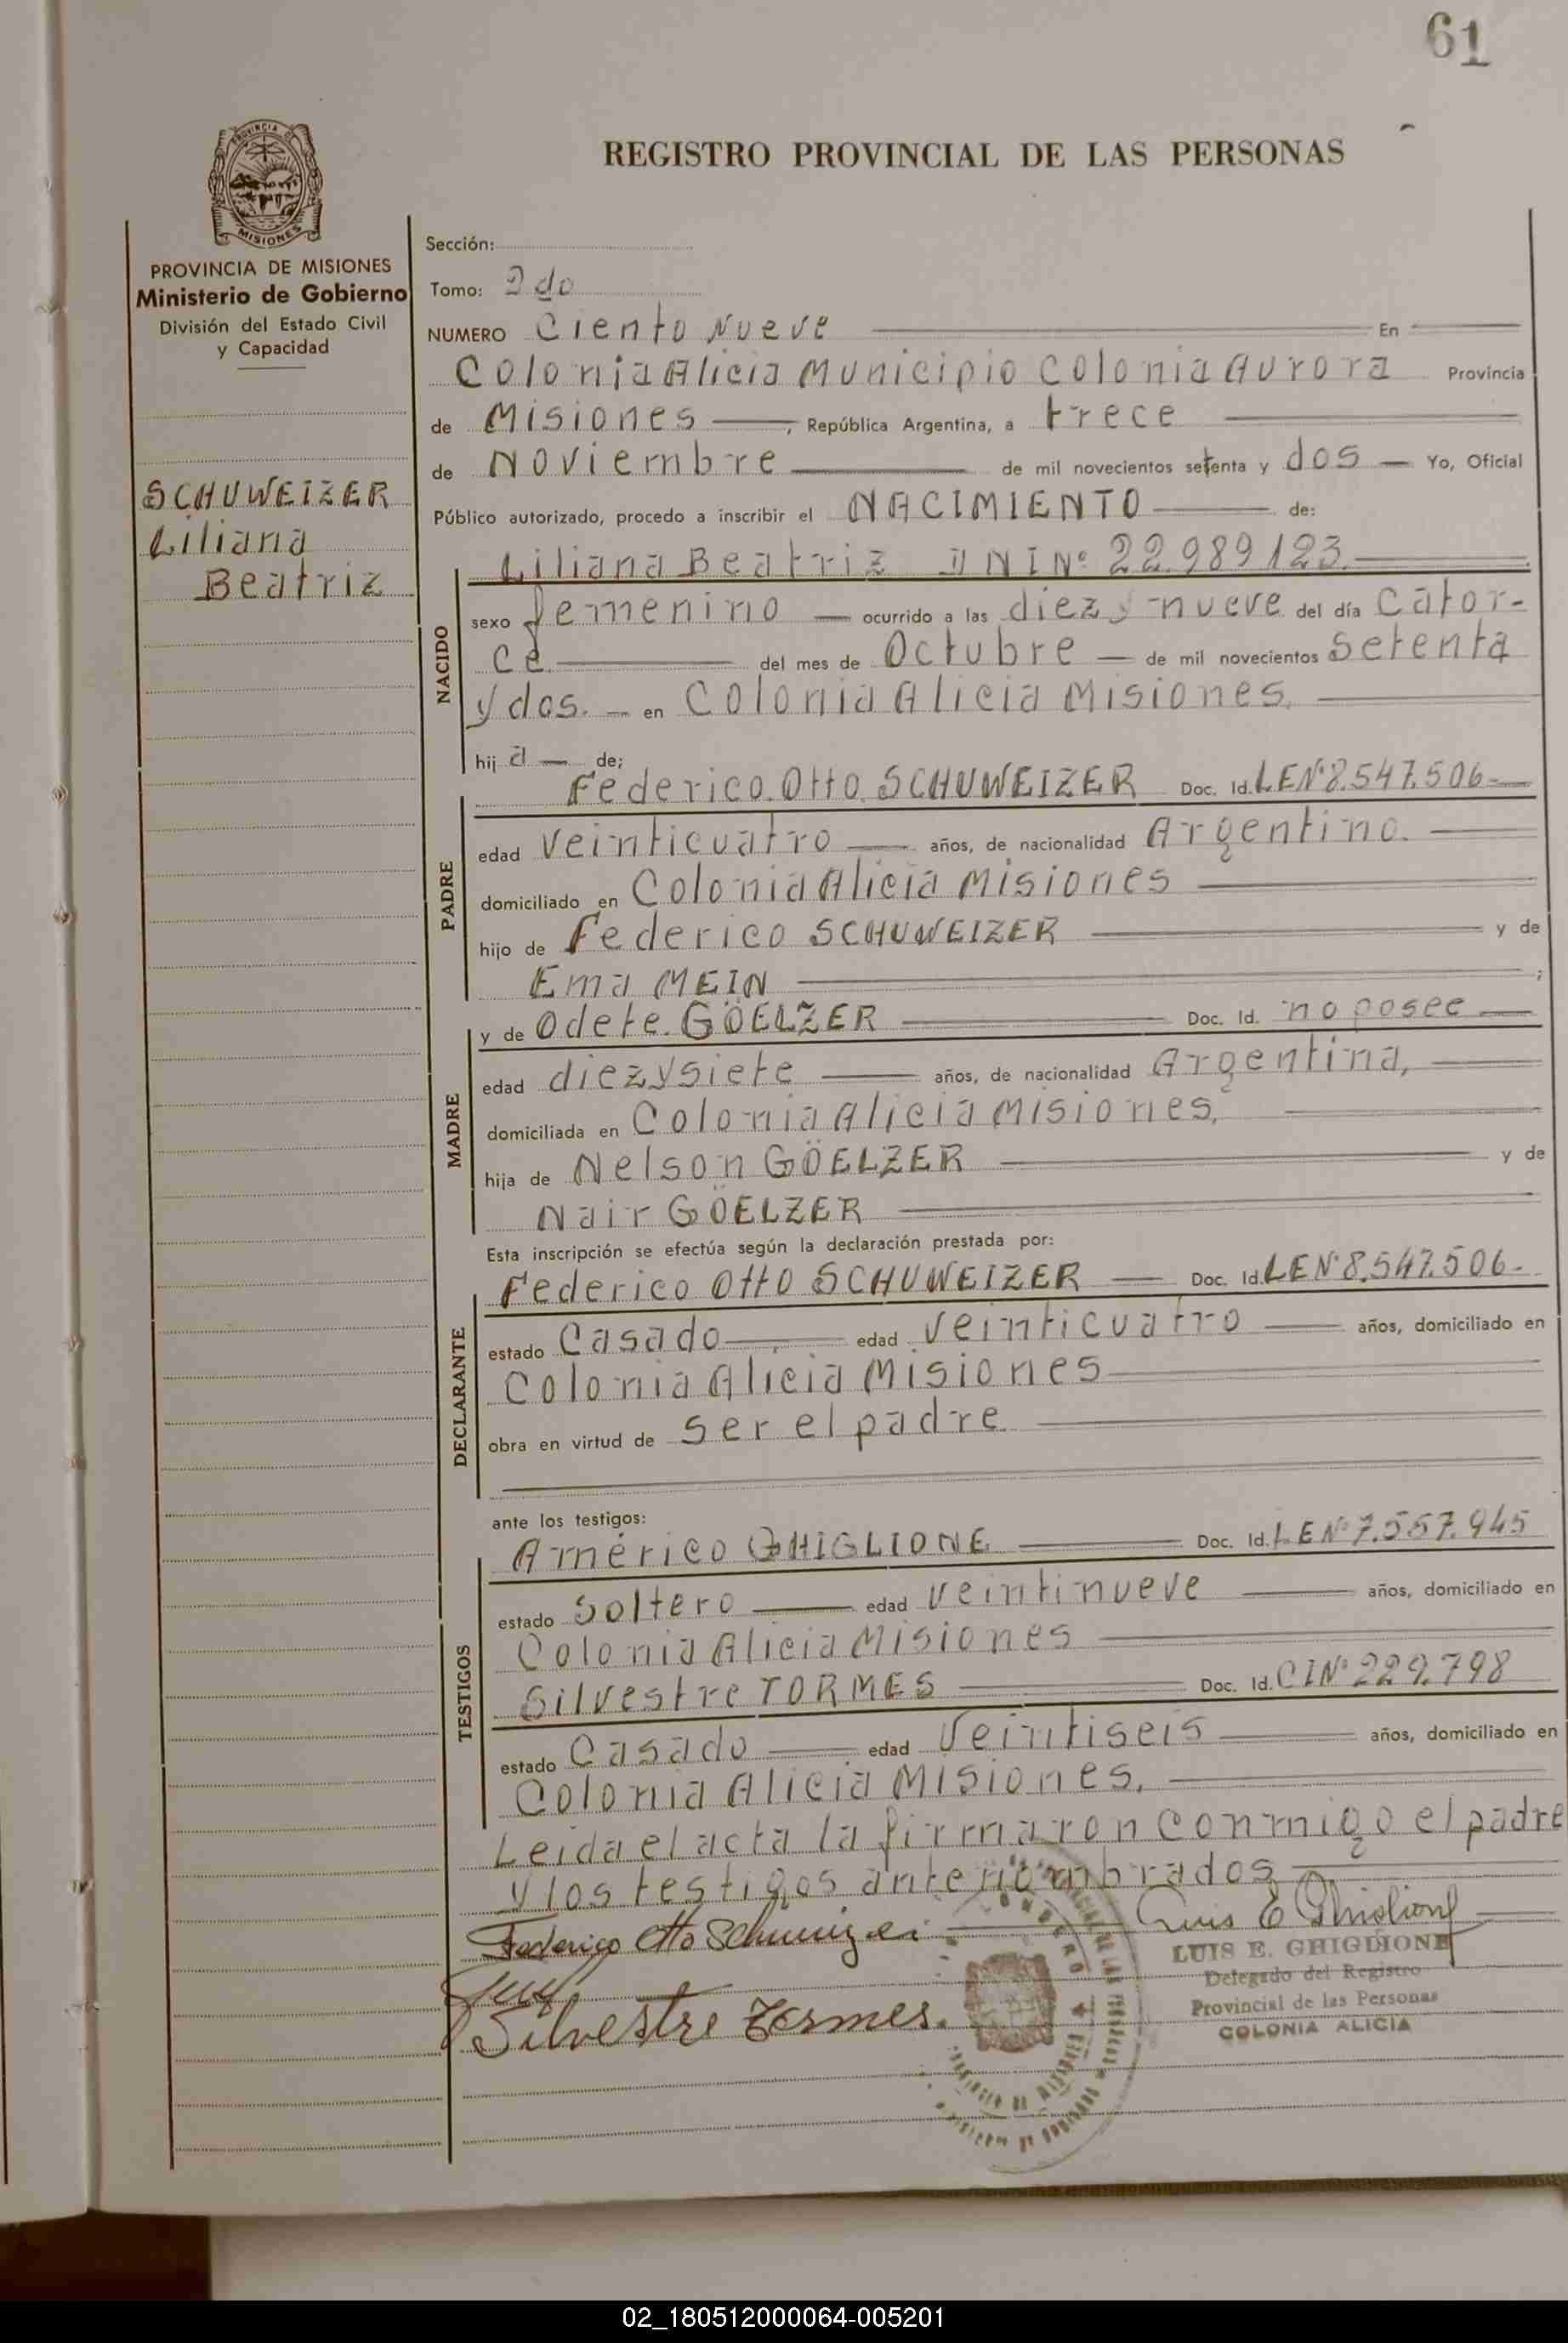 61
REGISTRO PROVINCIAL DE LAS PERSONAS
PROVINCIA DE MISIONES
Ministerio de Gobierno
División del Estado Civil
y Capacidad
SCHUWEIZER
Liliana
Beatriz
Sección:
Tomo: 2do
NUMERO Ciento Nueve En
Colonia Alicia Municipio Colonia Aurora Provincia
de Misiones, República Argentina, a trece
de Noviembre de mil novecientos setenta y dos Yo, Oficial
Público autorizado, procedo a inscribir el NACIMIENTO de:
NACIDO
Liliana Beatriz DNI Nº 22.989.123.
sexo femenino ocurrido a las diez y nueve del día Cator-
ce del mes de Octubre de mil novecientos setenta
y dos. en Colonia Alicia Misiones.
hija de;
PADRE
Federico Otto SCHUWEIZER Doc. Id. LENº8.547.506
edad veinticuatro años, de nacionalidad Argentino.
domiciliado en Colonia Alicia Misiones
hijo de Federico SCHUWEIZER y de
Ema MEIN ;
MADRE
y de Odete GÖELZER Doc. Id. no posee
edad diez y siete años, de nacionalidad Argentina,
domiciliada en Colonia Alicia Misiones,
hija de Nelson GÖELZER y de
Nair GÖELZER
Esta inscripción se efectúa según la declaración prestada por:
DECLARANTE
Federico Otto SCHUWEIZER Doc. Id. LENº8.547.506.
estado Casado edad veinticuatro años, domiciliado en
Colonia Alicia Misiones
obra en virtud de ser el padre
ante los testigos:
TESTIGOS
Américo GHIGLIONE Doc. Id. LENº7.557.945
estado Soltero edad veintinueve años, domiciliado en
Colonia Alicia Misiones
Silvestre TORMES Doc. Id. CINº229.798
estado Casado edad Veintiseis años, domiciliado en
Colonia Alicia Misiones.
Leida el acta la firmaron conmigo el padre
y los testigos antenombrados
Federico Otto Schuweizer
Luis E Ghiglione
LUIS E. GHIGLIONE
Delegado del Registro
Provincial de las Personas
COLONIA ALICIA
Silvestre Tormes.
02_180512000064-005201